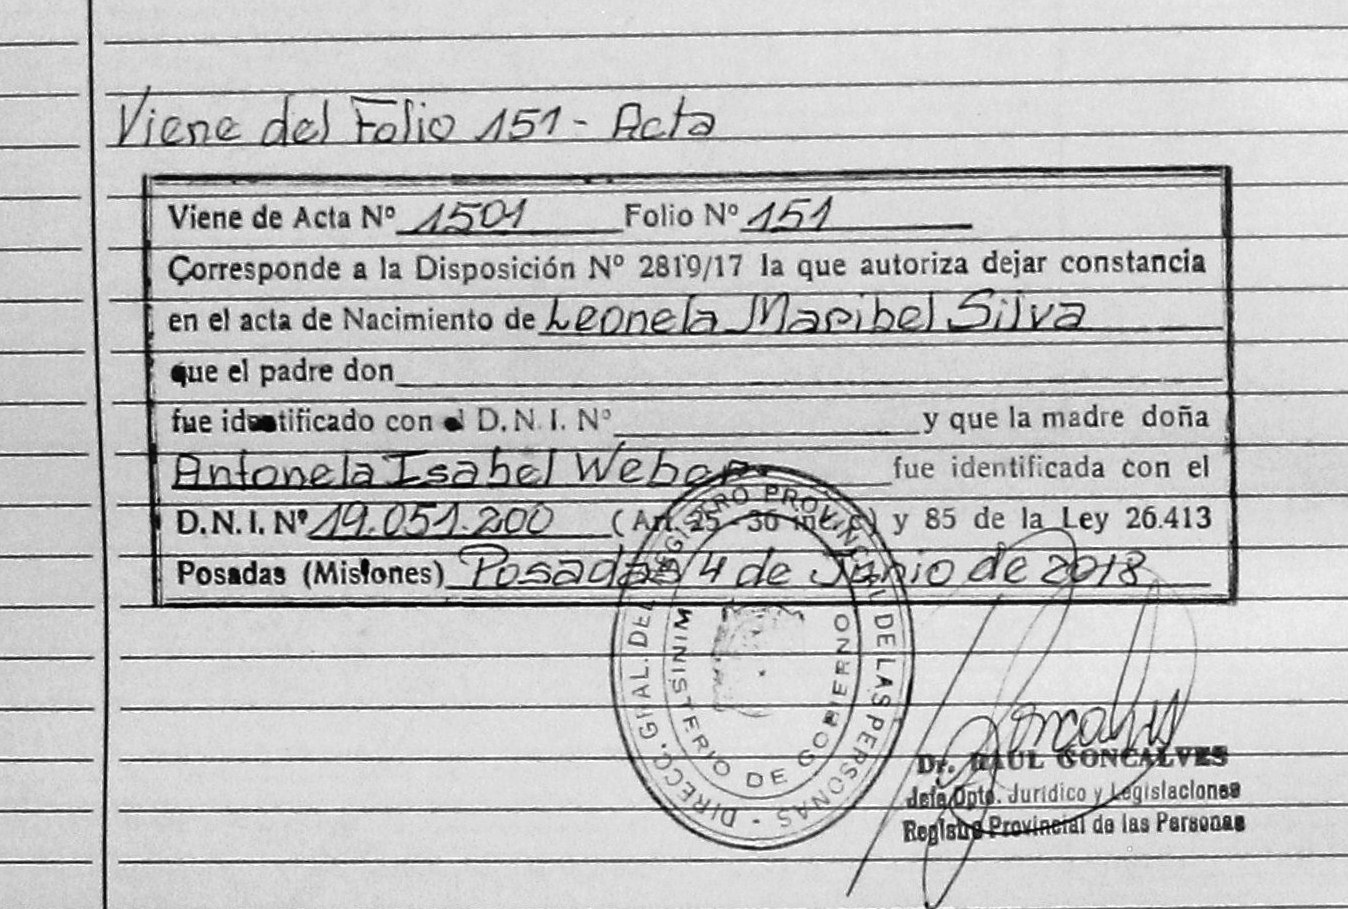 Viene del Folio 151 - Acta
Viene de Acta Nº 1501 Folio Nº 151
Corresponde a la Disposición Nº 2819/17 la que autoriza dejar constancia
en el acta de Nacimiento de Leonela Maribel Silva
que el padre don
fue identificado con el D. N. I. Nº y que la madre doña
Antonela Isabel Weber fue identificada con el
D. N. I. Nº 19.051.200 (Art. 25 - 36 inc. c) y 85 de la Ley 26.413
Posadas (Misiones) Posadas 4 de Junio de 2018
DIRECC. GRAL. DEL REGISTRO PROVINCIAL DE LAS PERSONAS -
MINISTERIO DE GOBIERNO
Goncalves
Dr. RAUL GONCALVES
Jefe Dpto. Jurídico y Legislaciones
Registro Provincial de las Personas